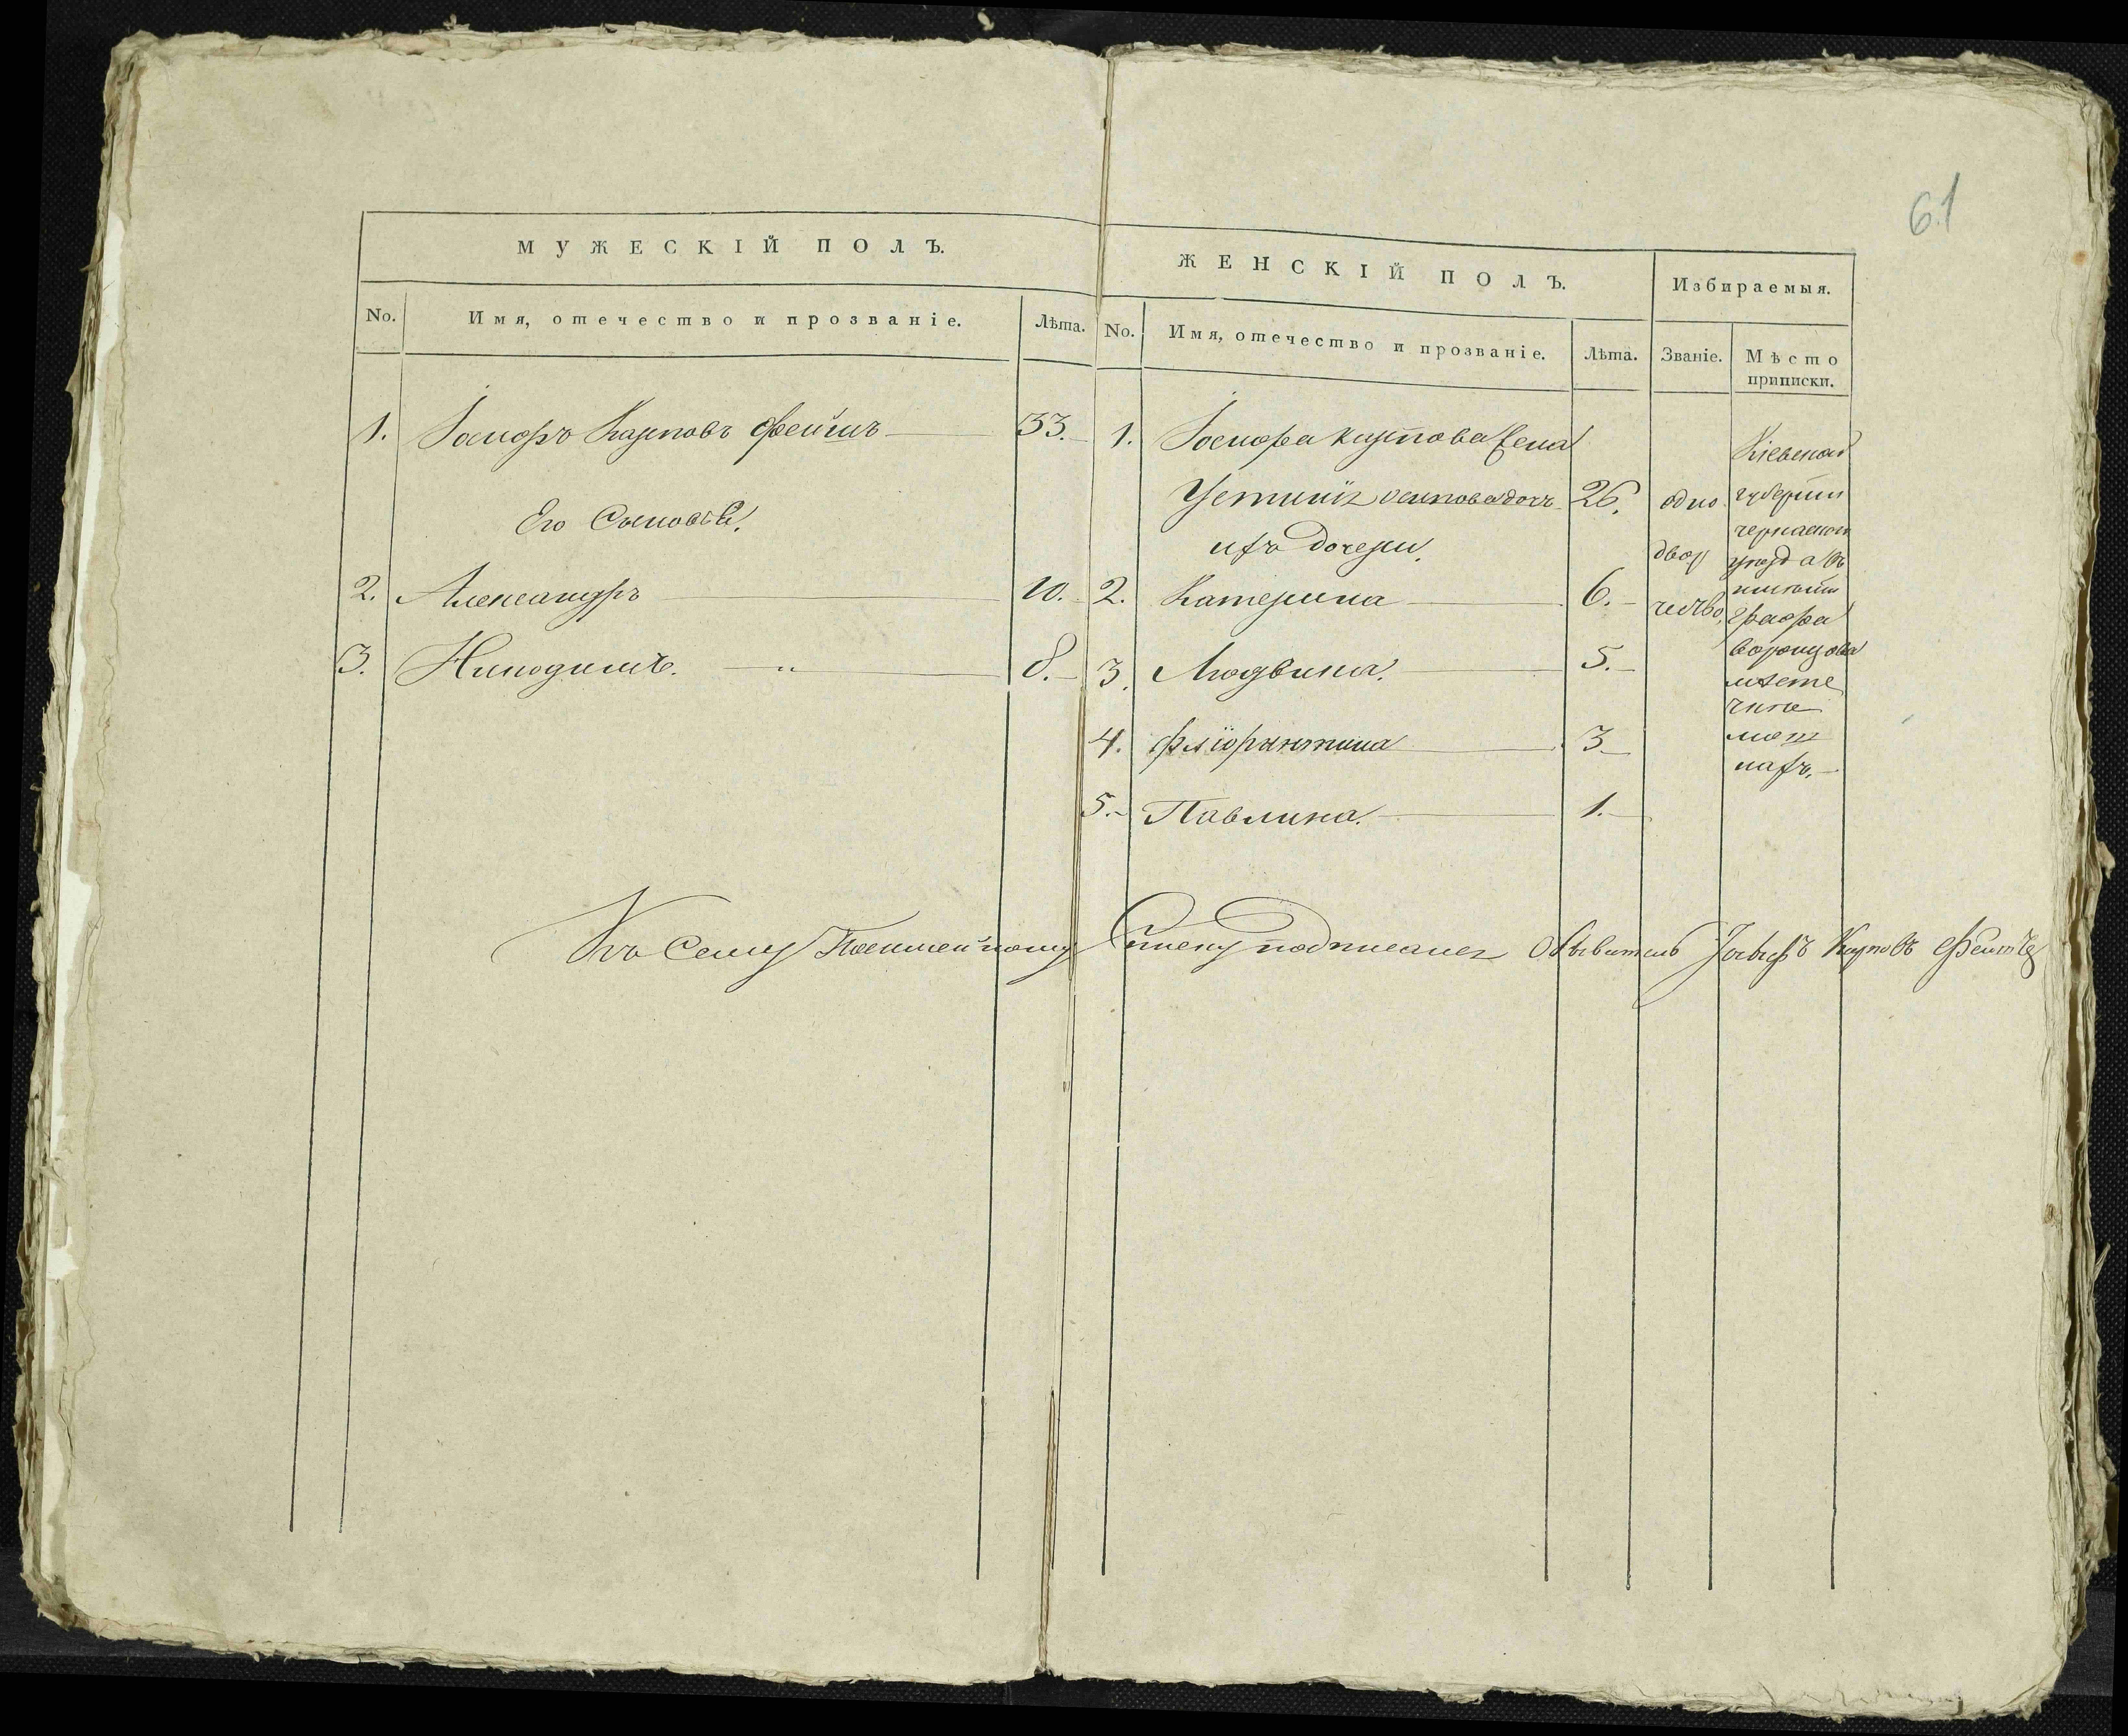 61
МУЖЕСКІЙ ПОЛЪ.
No. Имя, отечество и прозваніе. Лѣта.
1. Іосифъ Карповъ 33.
Его Сыновья.
2. Александръ 10.
3. Никодимъ. 8.
ЖЕНСКІЙ ПОЛЪ.
Избираемыя.
No. Имя, отечество и прозваніе. Лѣта. Званіе. Мѣсто приписки.
1. Іосифа Карпова Жена
Устинія осипова дочь 26.
ихъ дочери.
2. Катерина 6.
3. Людвина. 5.
4. Фліорінтина 3
5. Павлина. 1.
одно
двор
чество,
Кіевской
губерніи
черкаского
уезда въ
имѣніи
графа
воронцова
мѣсте
чкѣ
мош
нахъ.
Къ Сему Посемейному Списку подписался Обыватель Іосифъ Карповъ